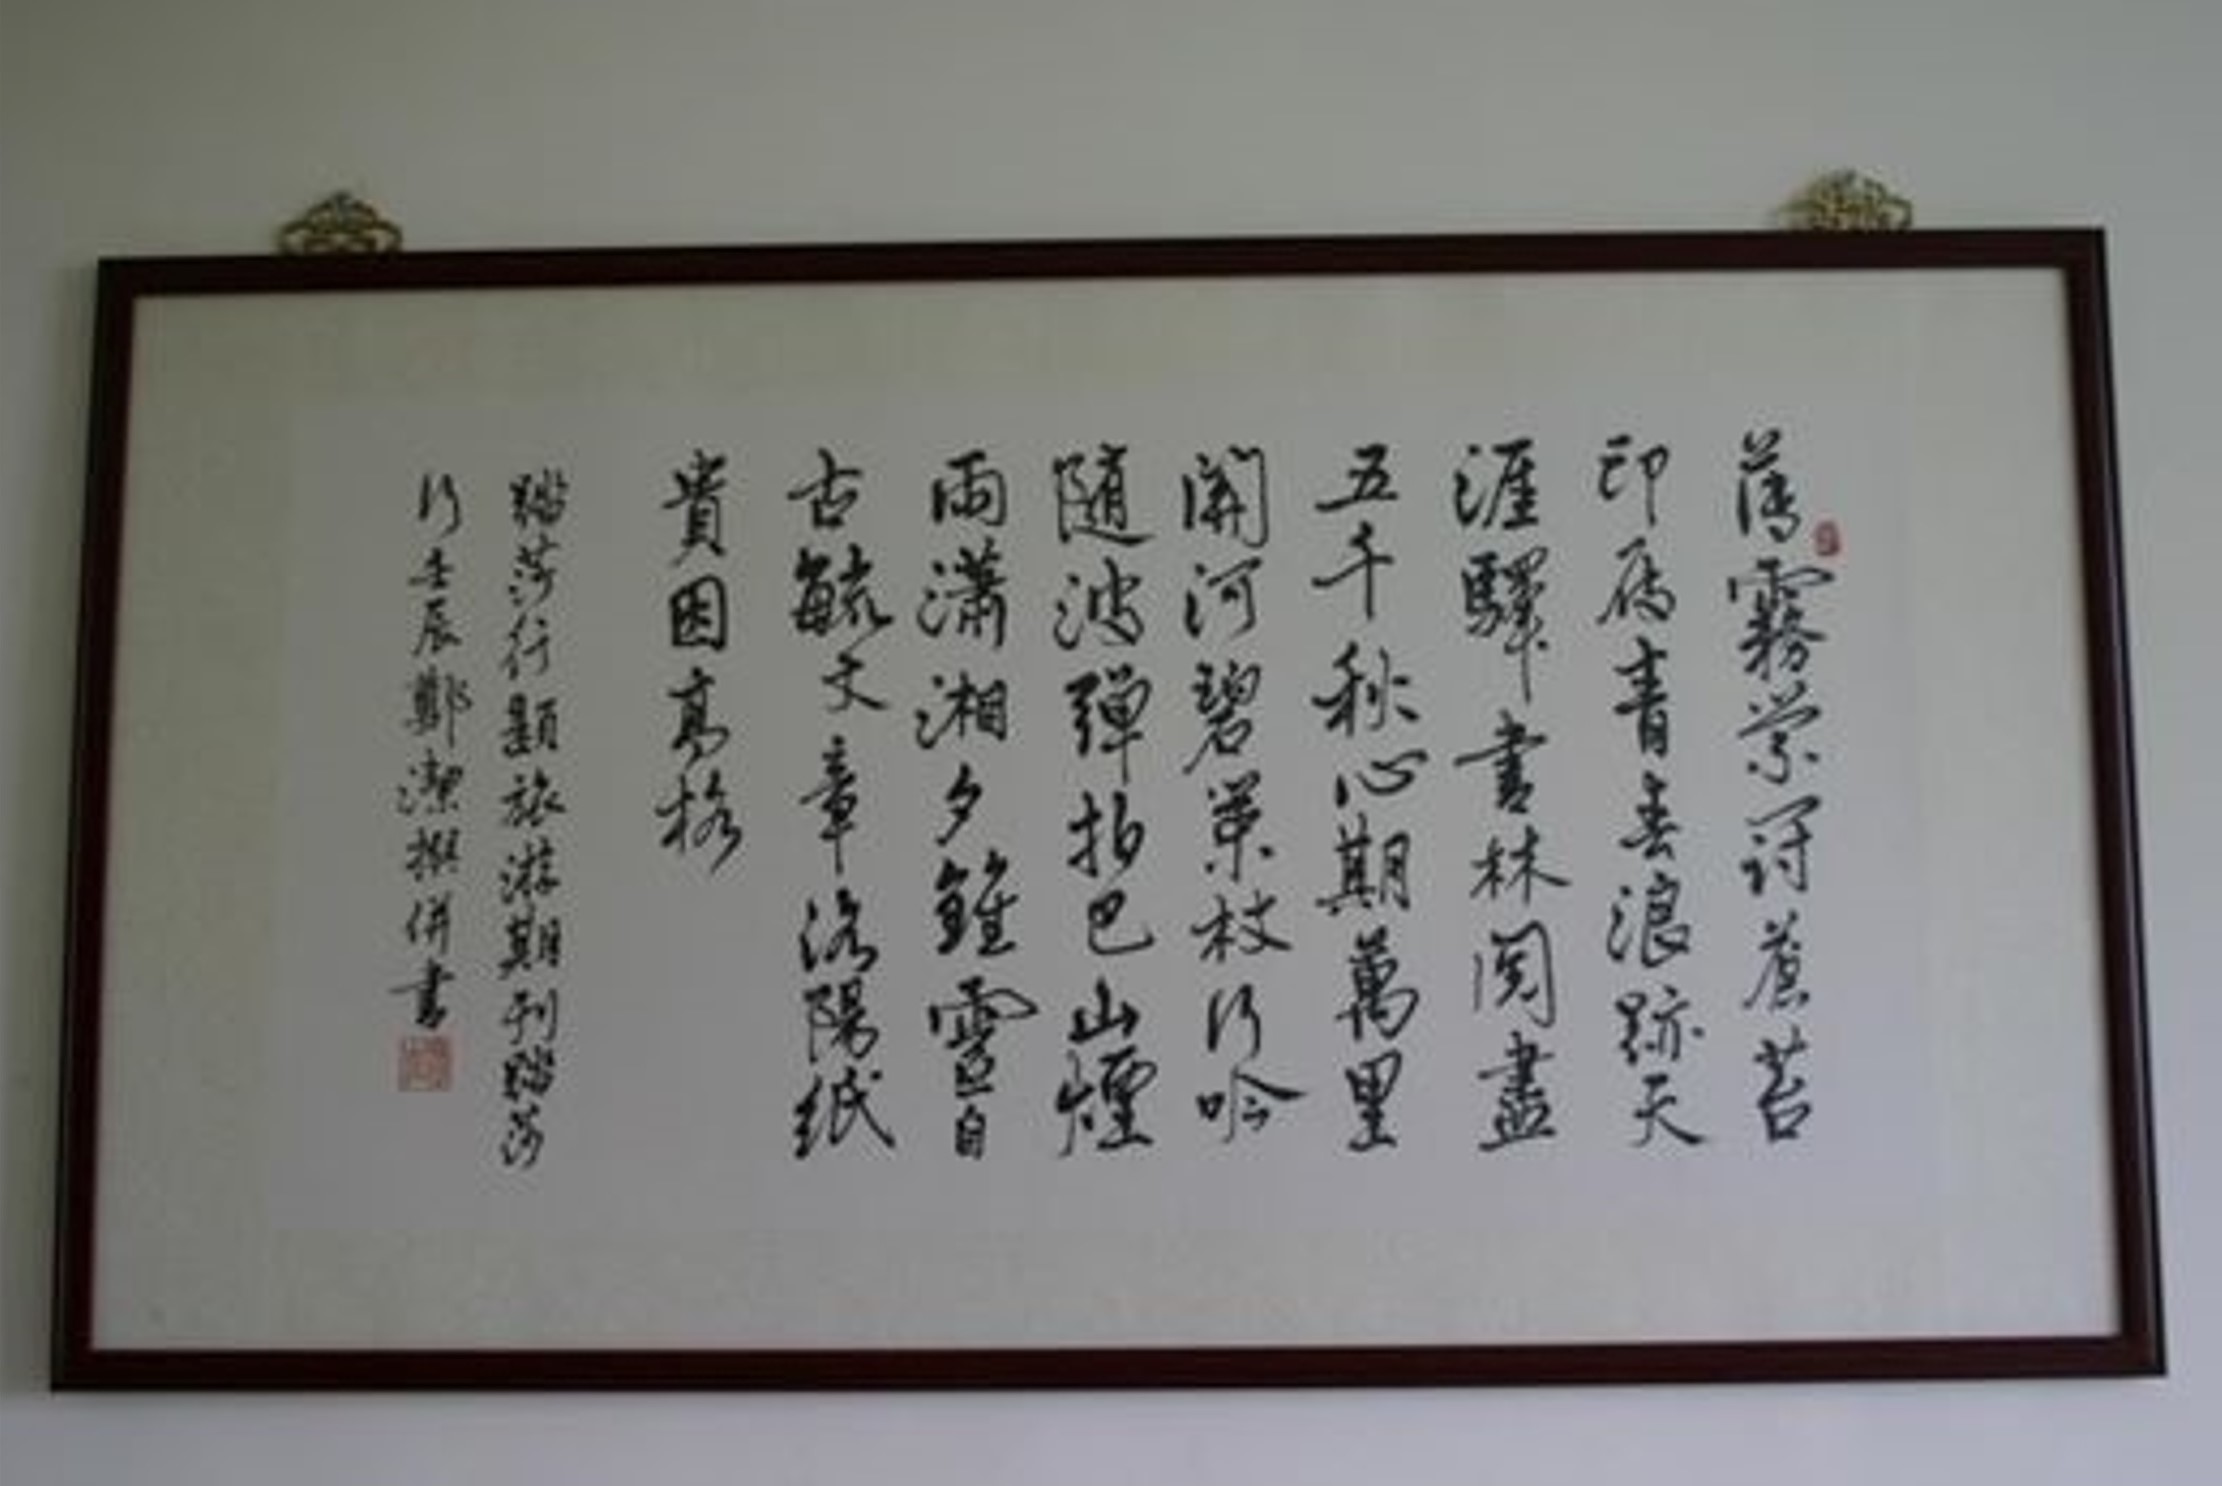 薄霧縈河蒼苔
印屐青春浪跡天
涯驛書林閱盡
五千秋心期萬里
關河碧築枝行吟
隨波彈拍巴山煙
雨瀟湘夕鐘靈自
古毓文章洛陽紙
貴因高格
踏莎行題旅游期刊踏莎
行壬辰鄭潔撰併書